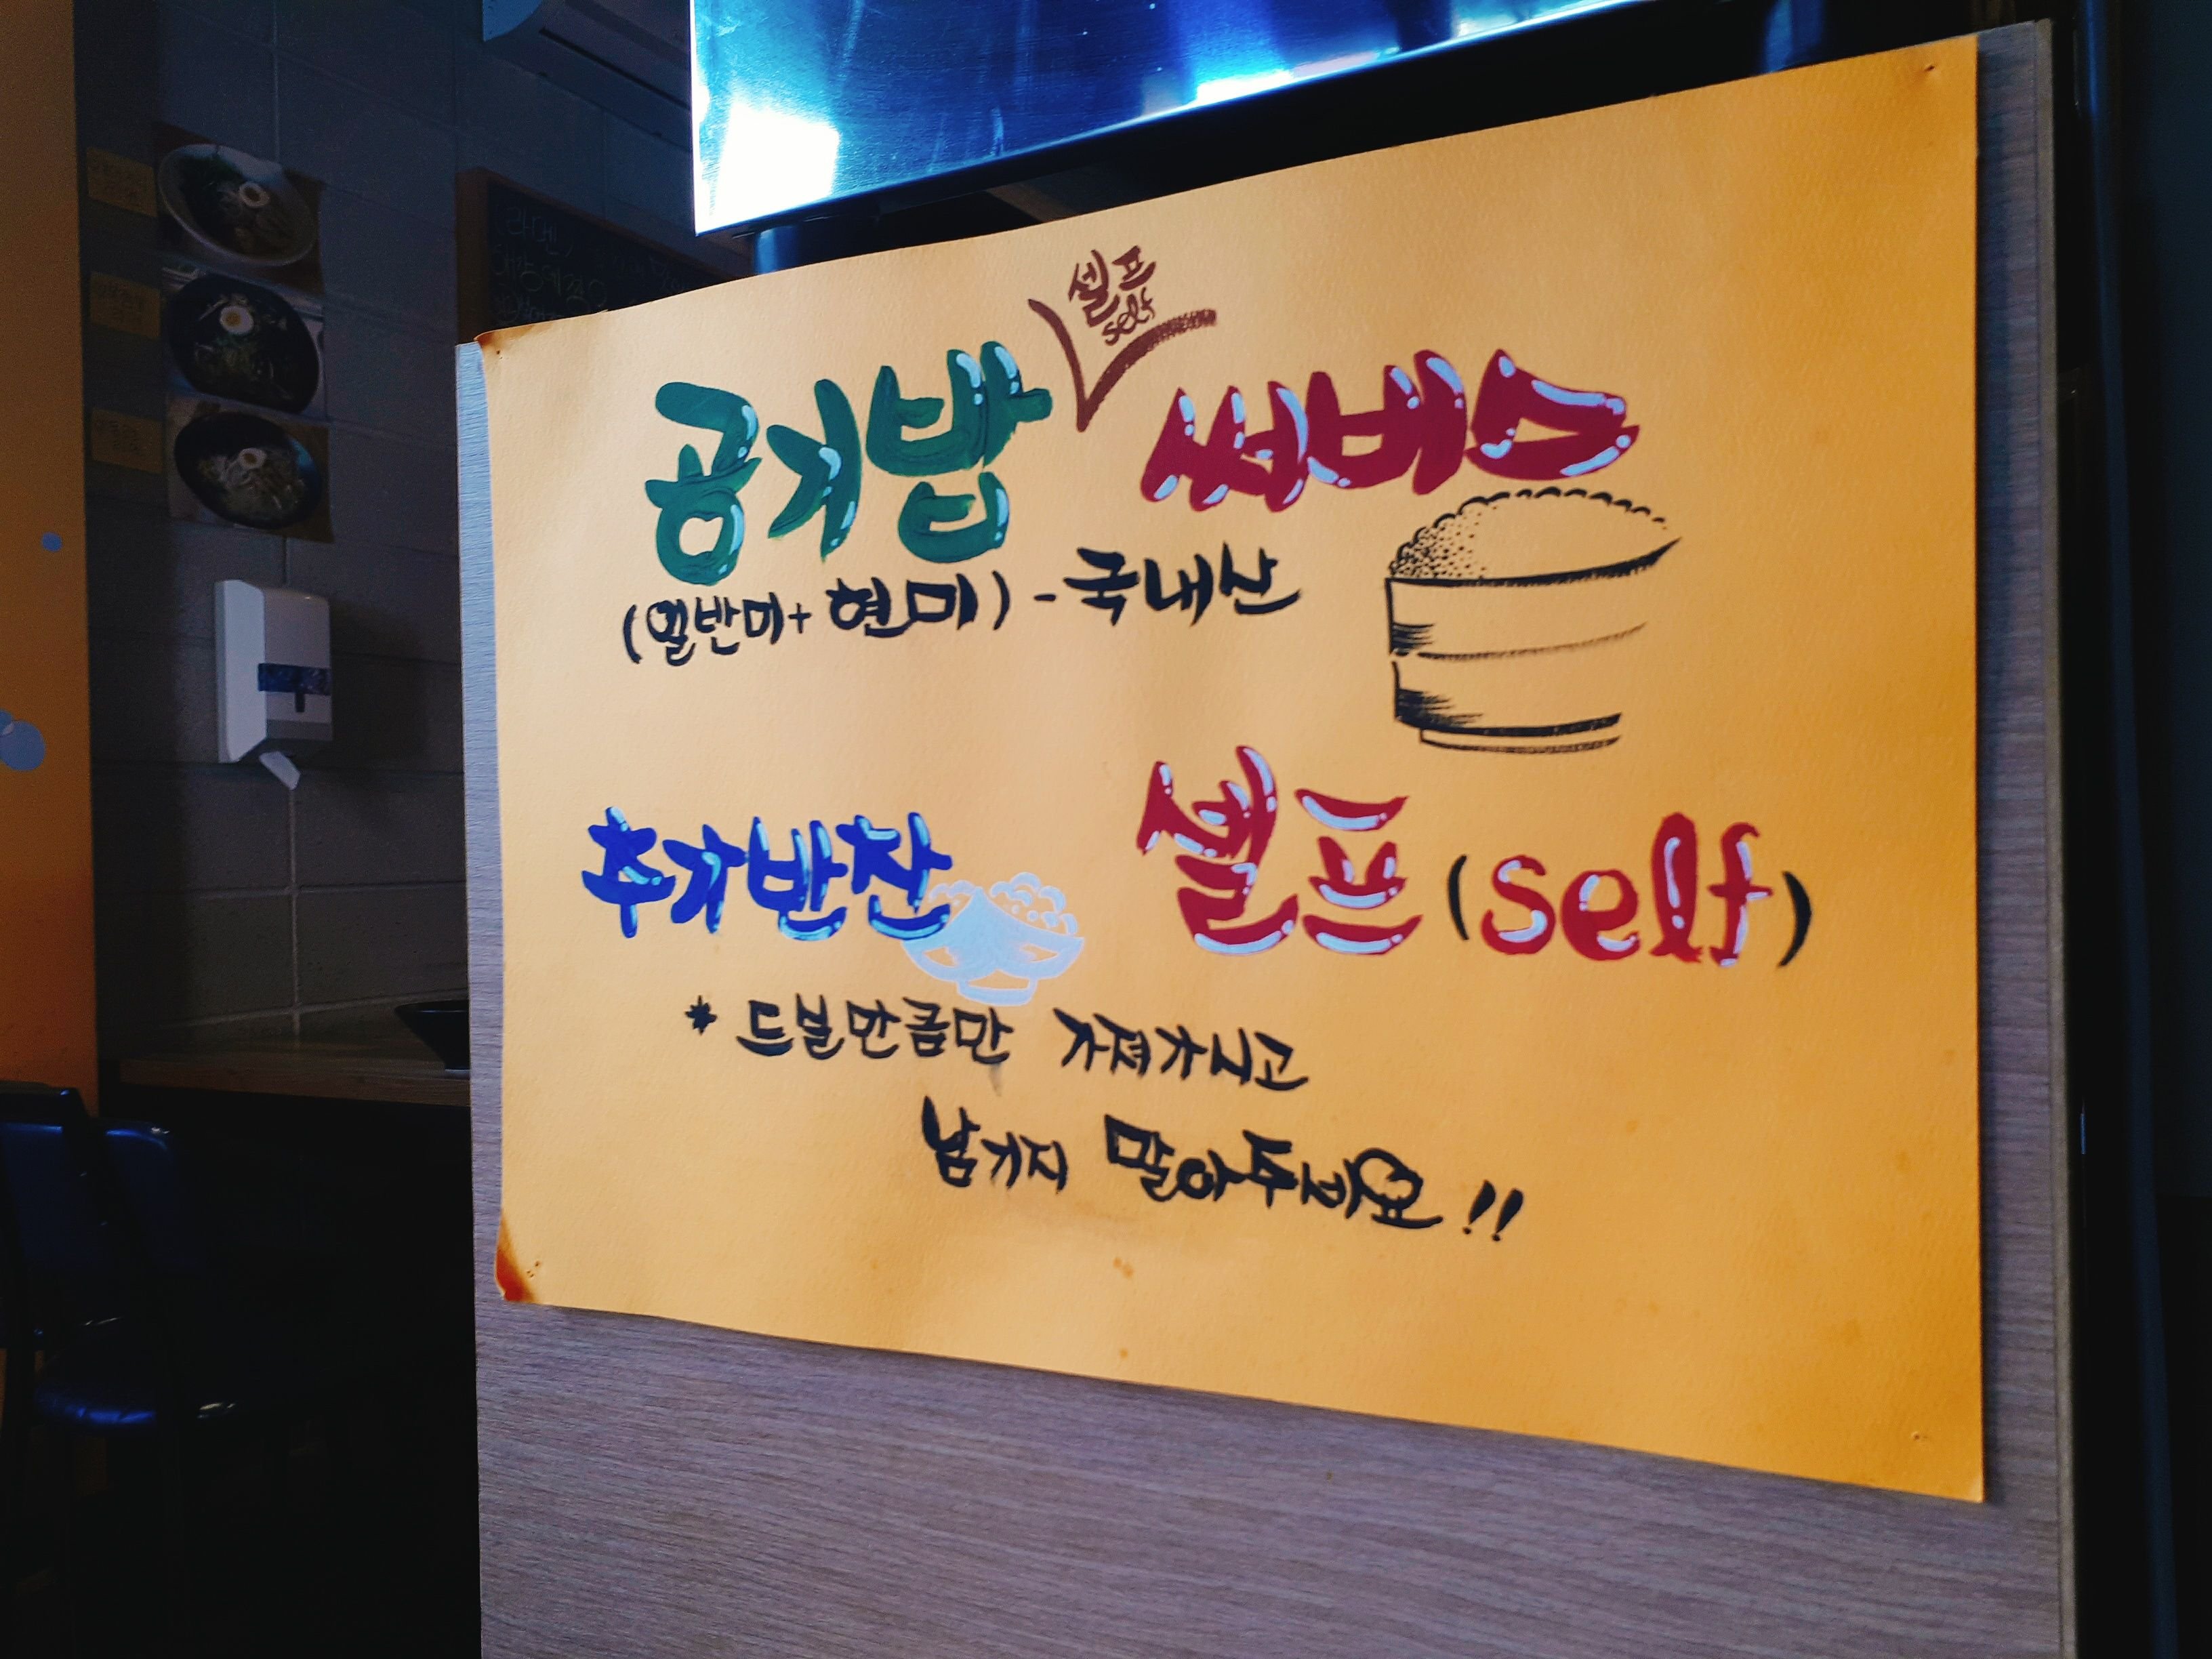 셀프
self
공기밥 써비스
(일반미+현미) - 국내산
추가반찬 셀프 (self)
* 드실만큼만 가져가시고
남기지 말아주세요!!